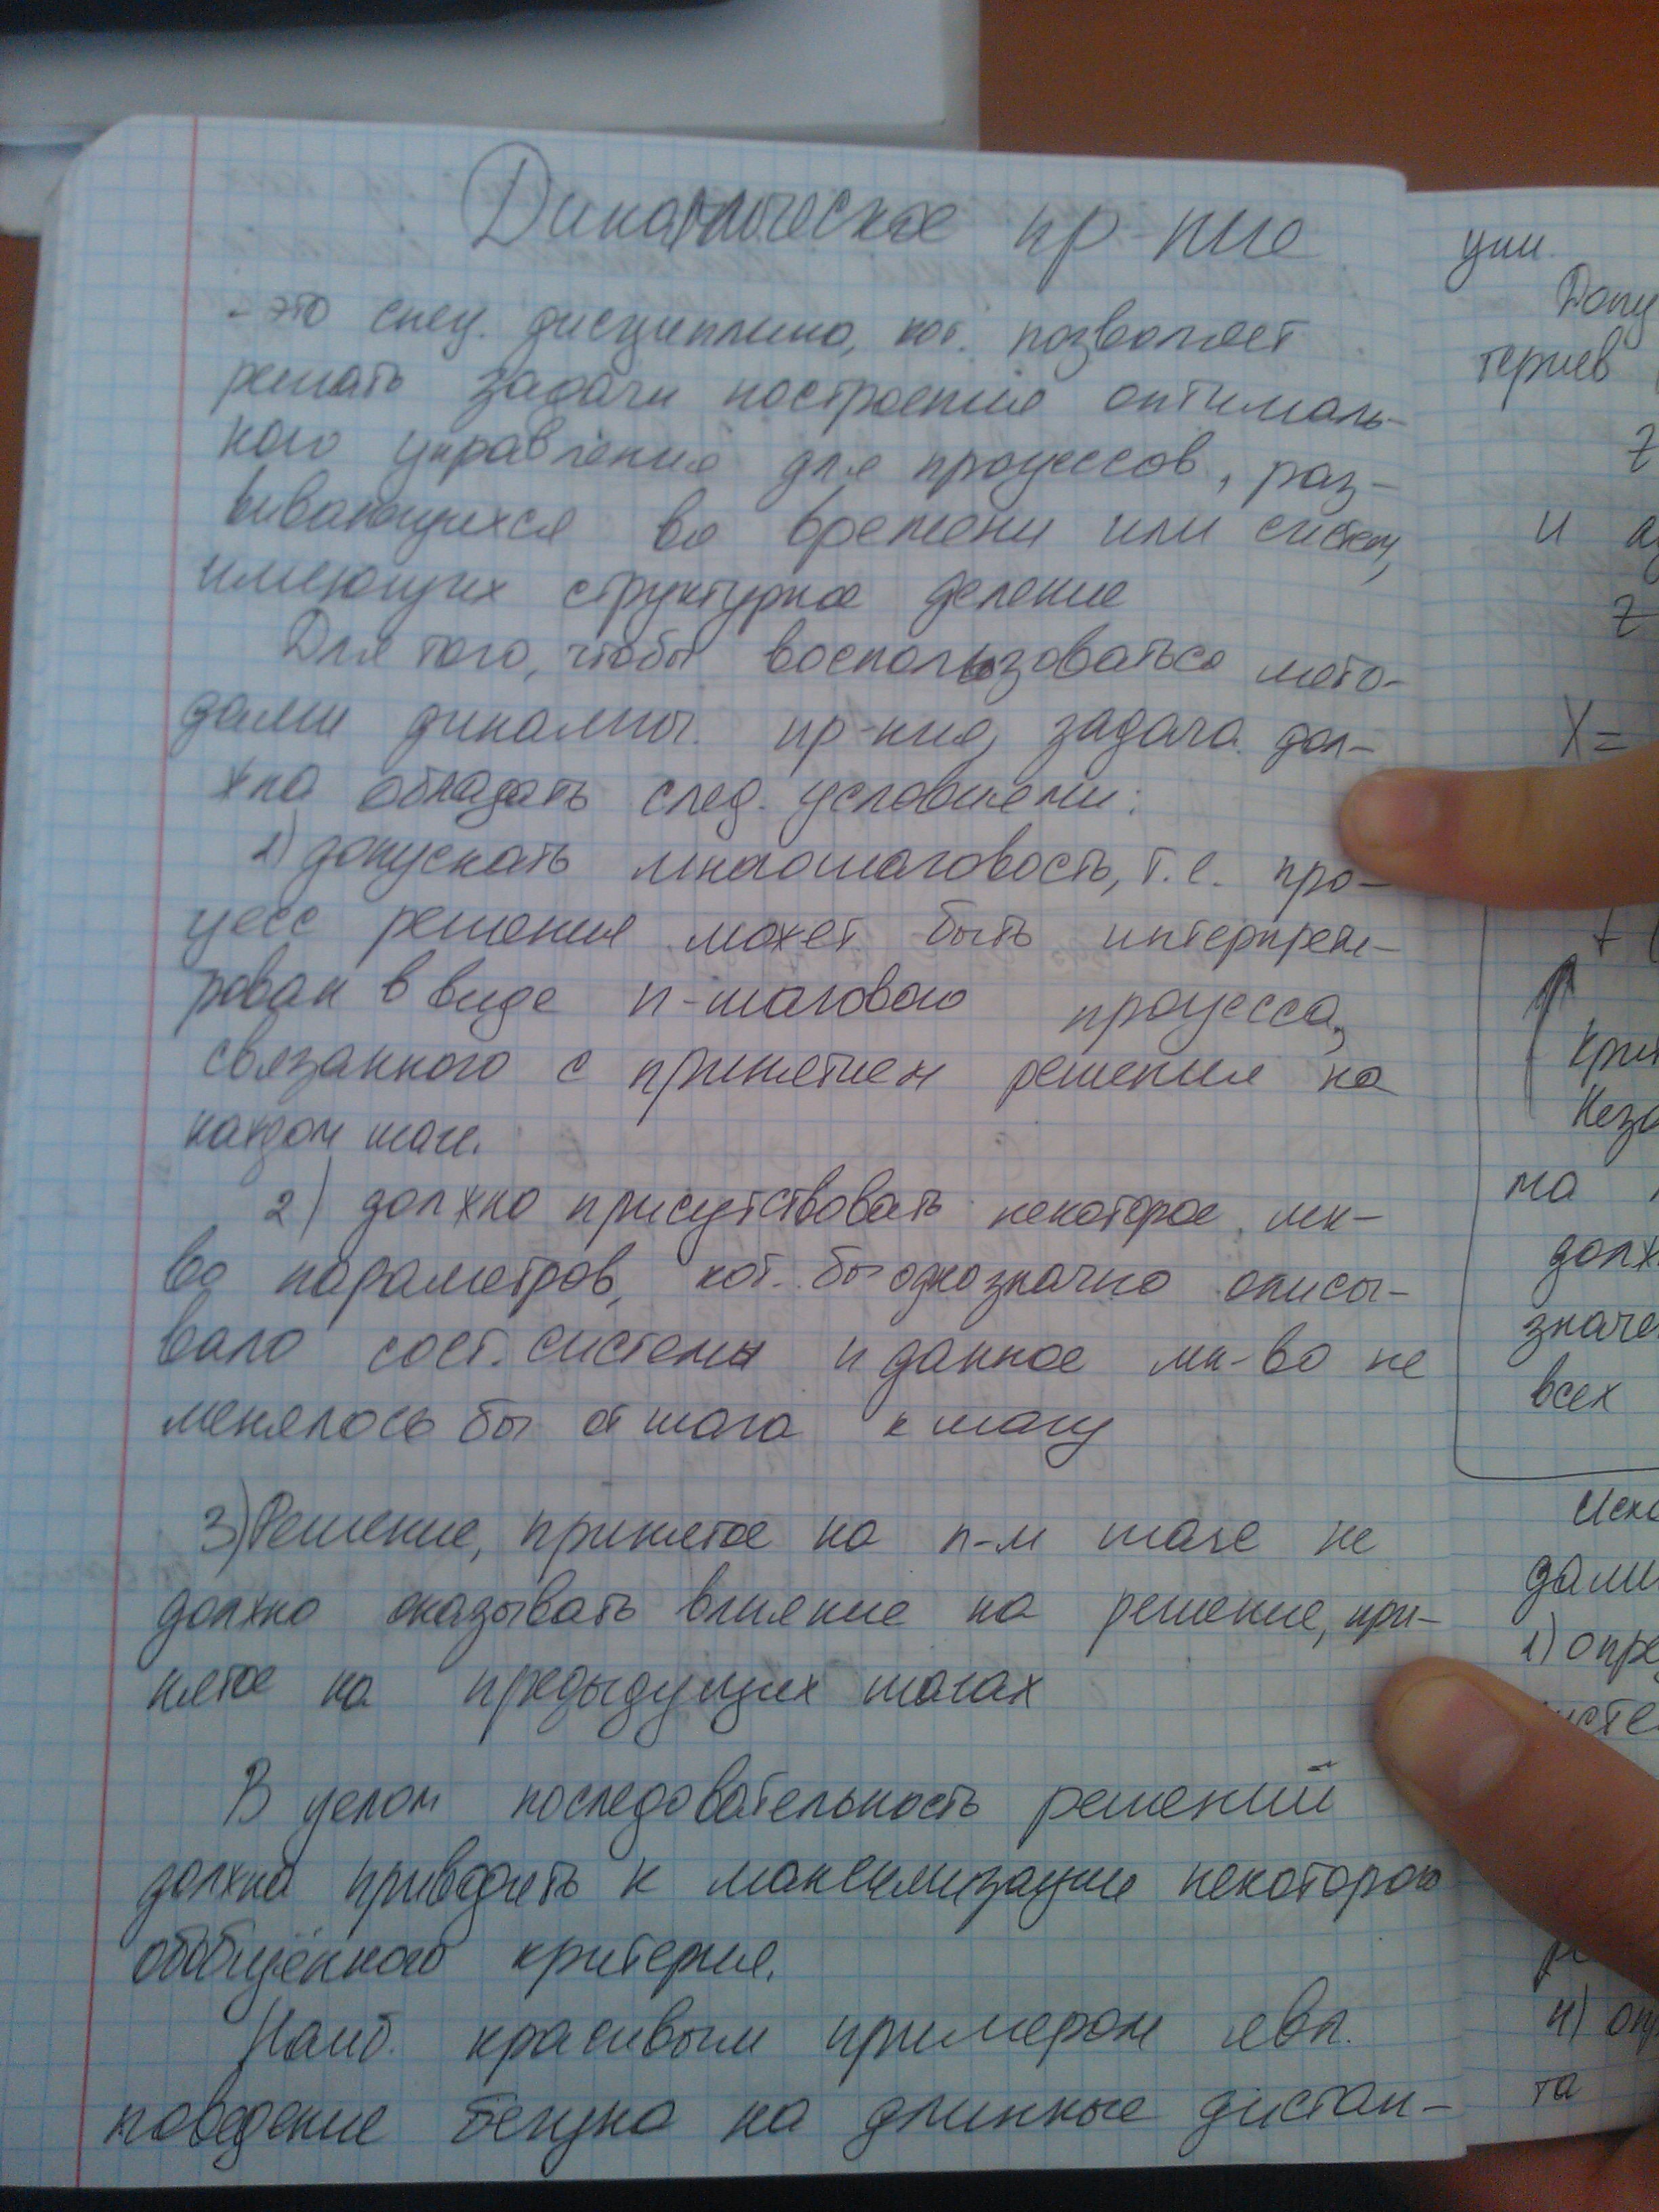 Динамическое пр-ние
- это спец. дисциплина, кот. позволяет
решать задачи построения оптималь-
ного управления для процессов, раз-
вивающихся во времени или систем,
имеющих структурное деление
Для того, чтобы воспользоваться мето-
дами динамич. пр-ния, задача дол-
жна обладать след. условиями:
1) допускать многошаговость, т.е. про-
цесс решения может быть интерпрети-
рован в виде n-шагового процесса,
связанного с принятием решения на
каждом шаге.
2) должно присутствовать некоторое мн-
во параметров, кот. бы однозначно описы-
вало сост. системы и данное мн-во не
менялось бы от шага к шагу
3) Решение, принятое на n-м шаге не
должно оказывать влияние на решение, при-
нятое на предыдущих шагах
В целом последовательность решений
должна приводить к максимизации некоторого
обобщённого критерия.
Наиб. красивым примером явл.
поведение бегуна на длинные дистан-
ции.
Допу
териев
Z
и
Z
X =
+ (
Крит
Неза
ма
долж
значе
всех
Иско
дами
1) опре
исте
4) опр
та